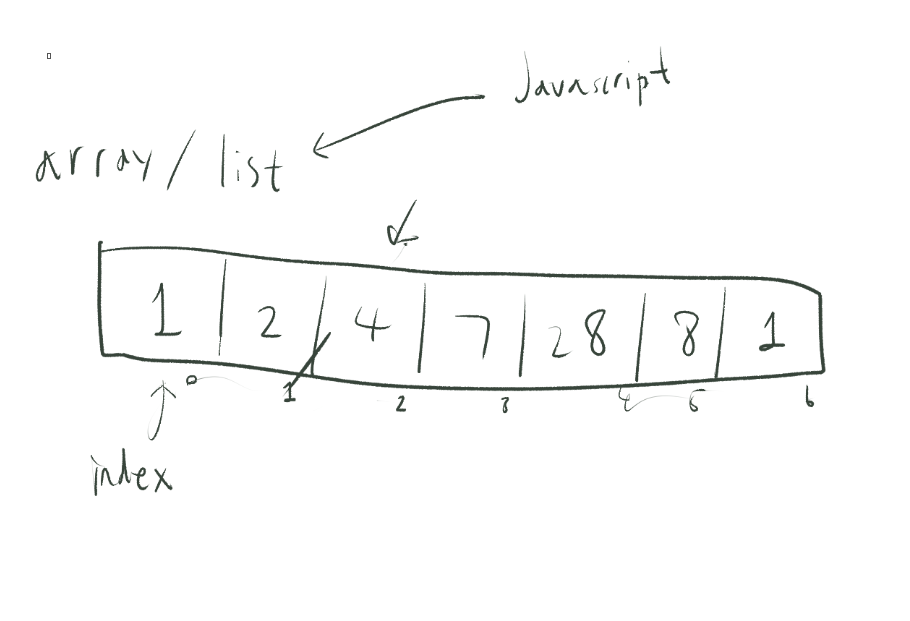 Javascript
array / list
1 2 4 7 28 8 1
0 1 2 3 4 5 6
index